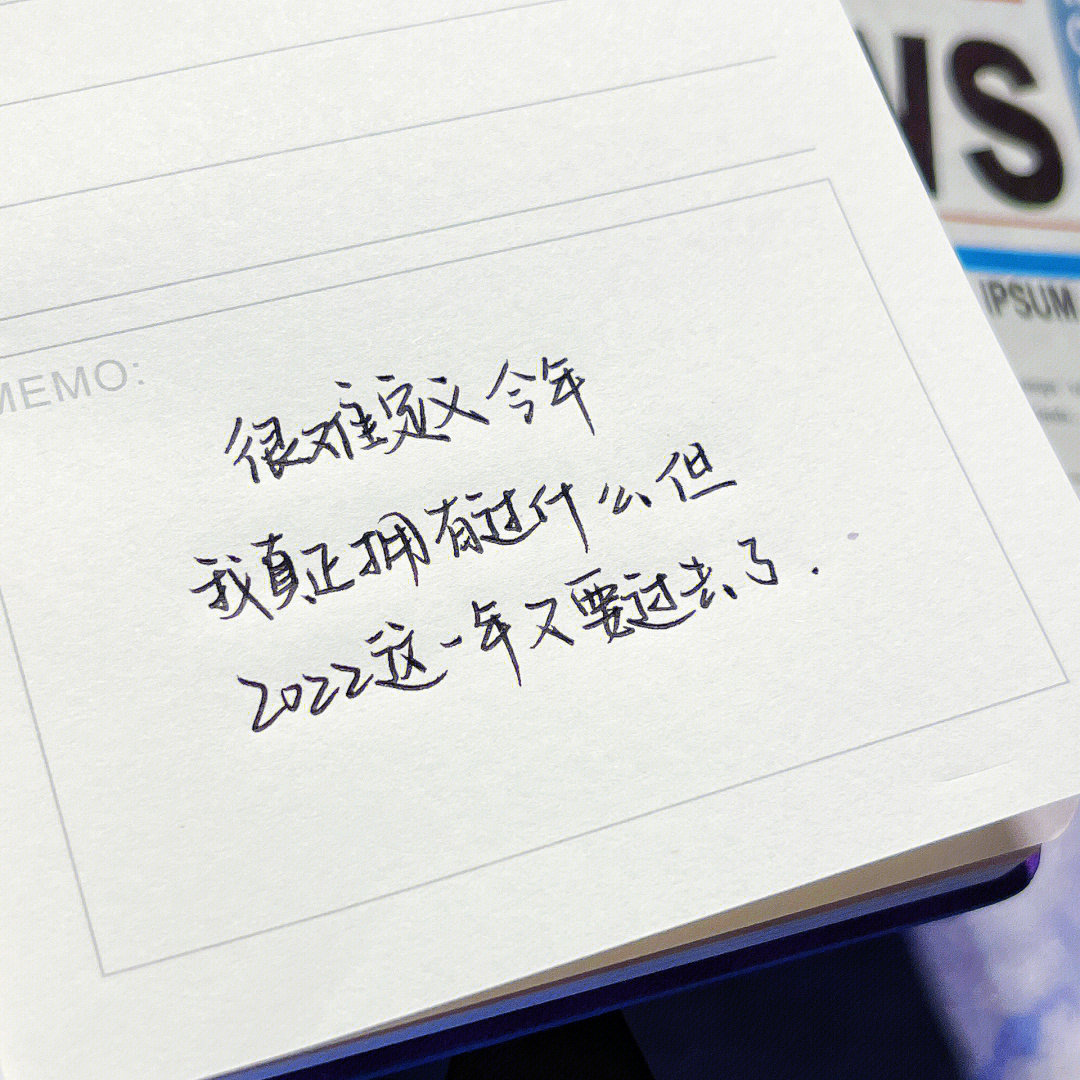 WS
IPSUM
MEMO:
很难定义今年
我真正拥有过什么但
2022这一年又要过去了.